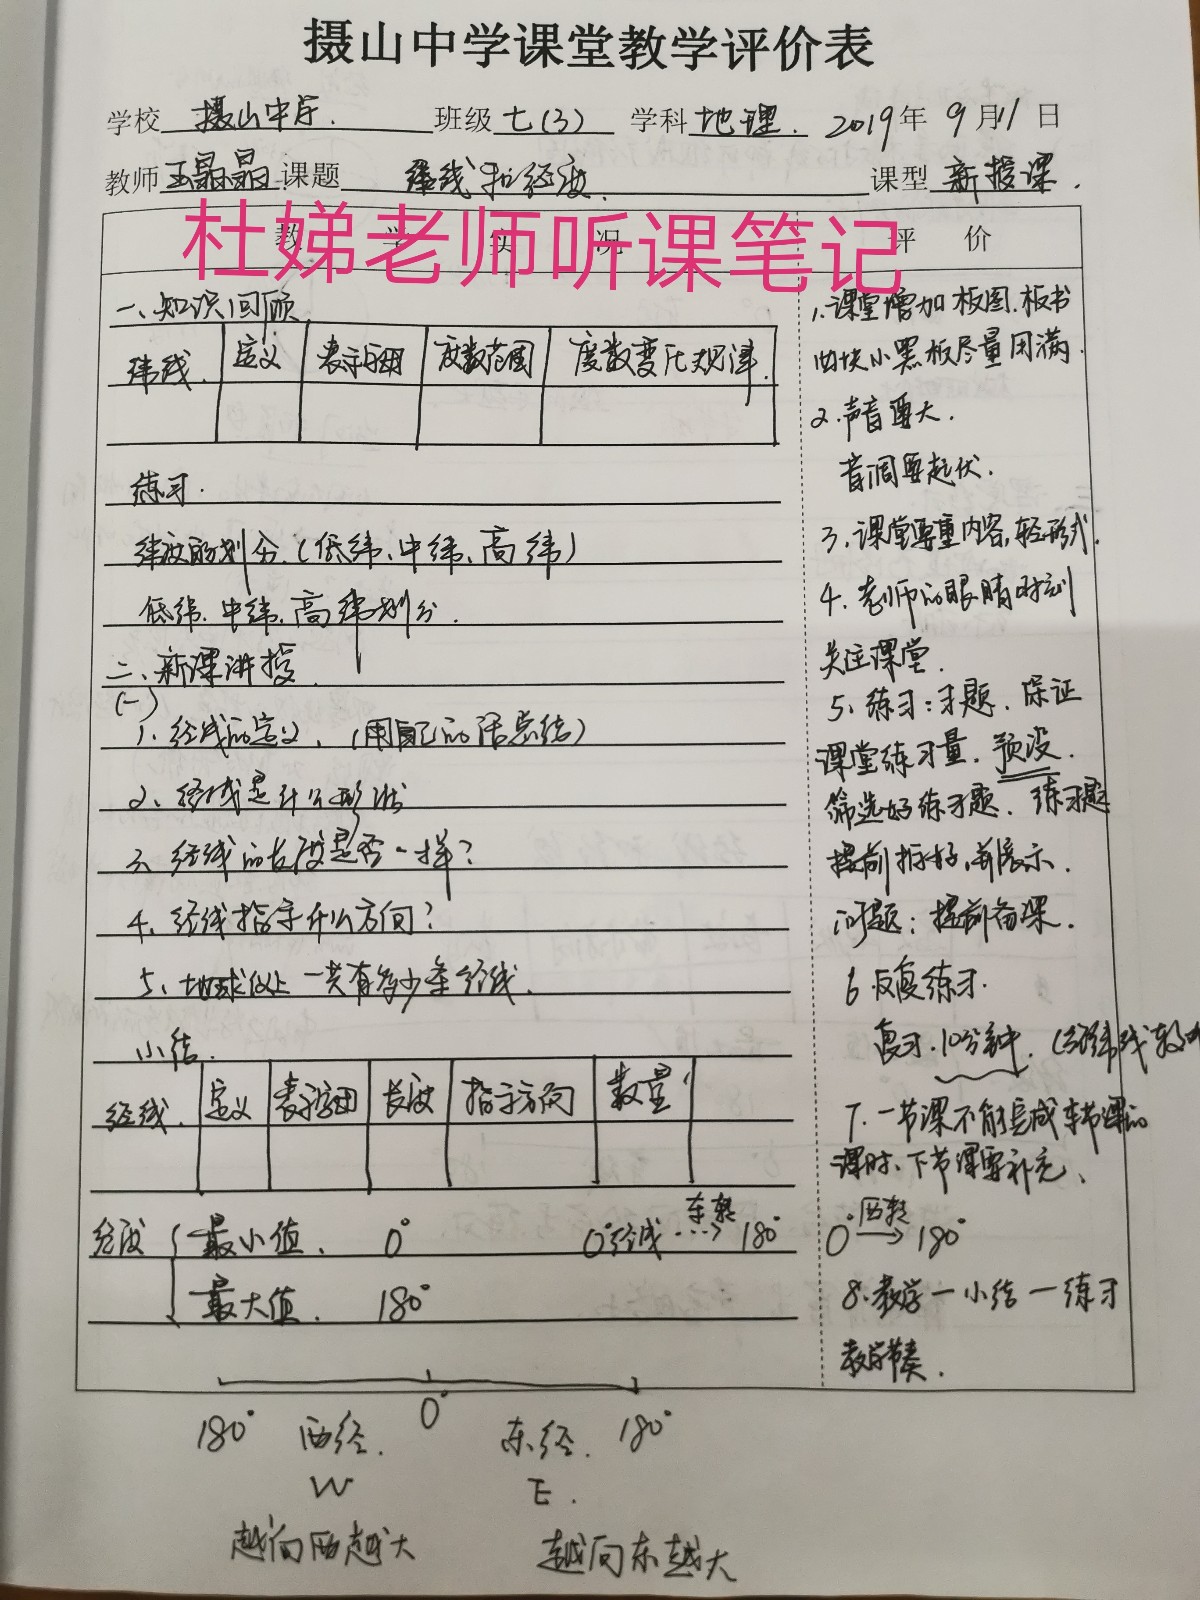 摄山中学课堂教学评价表
学校 摄山中学. 班级 七(3) 学科 地理. 2019年 9月11日
教师 王晶晶 课题 经线和经度. 课型 新授课.
杜娣老师听课笔记
教 学 实 况
一、知识回顾
纬线. 定义 表示字母 度数范围 度数变化规律.
练习.
纬度的划分.(低纬、中纬、高纬)
低纬、中纬、高纬划分.
二、新课讲授.
(一)
1、经线的定义、(用自己的话总结)
2、经线是什么形状
3、经线的长度是否一样?
4、经线指示什么方向?
5、地球仪上一共有多少条经线.
小结.
经线. 定义 表示字母 长度 指示方向 数量
经度 最小值、 0°
0°经线 东经 180°
最大值. 180°
180° 西经. 0° 东经. 180°
W E.
越向西越大 越向东越大
评 价
1.课堂增加板图.板书
四块小黑板尽量用满.
2.声音要大.
音调要起伏.
3.课堂要重内容,轻形式.
4.老师的眼睛时刻
关注课堂.
5、练习:习题、保证
课堂练习量.预设.
筛选好练习题、练习题
提前拆好,并展示.
问题:提前备课.
6 反复练习.
复习.10分钟.(经纬线较
7.一节课不能完成本节课的
课时、下节课要补充、
0° 西经 180°
8.教学一小结一练习
教学节奏.